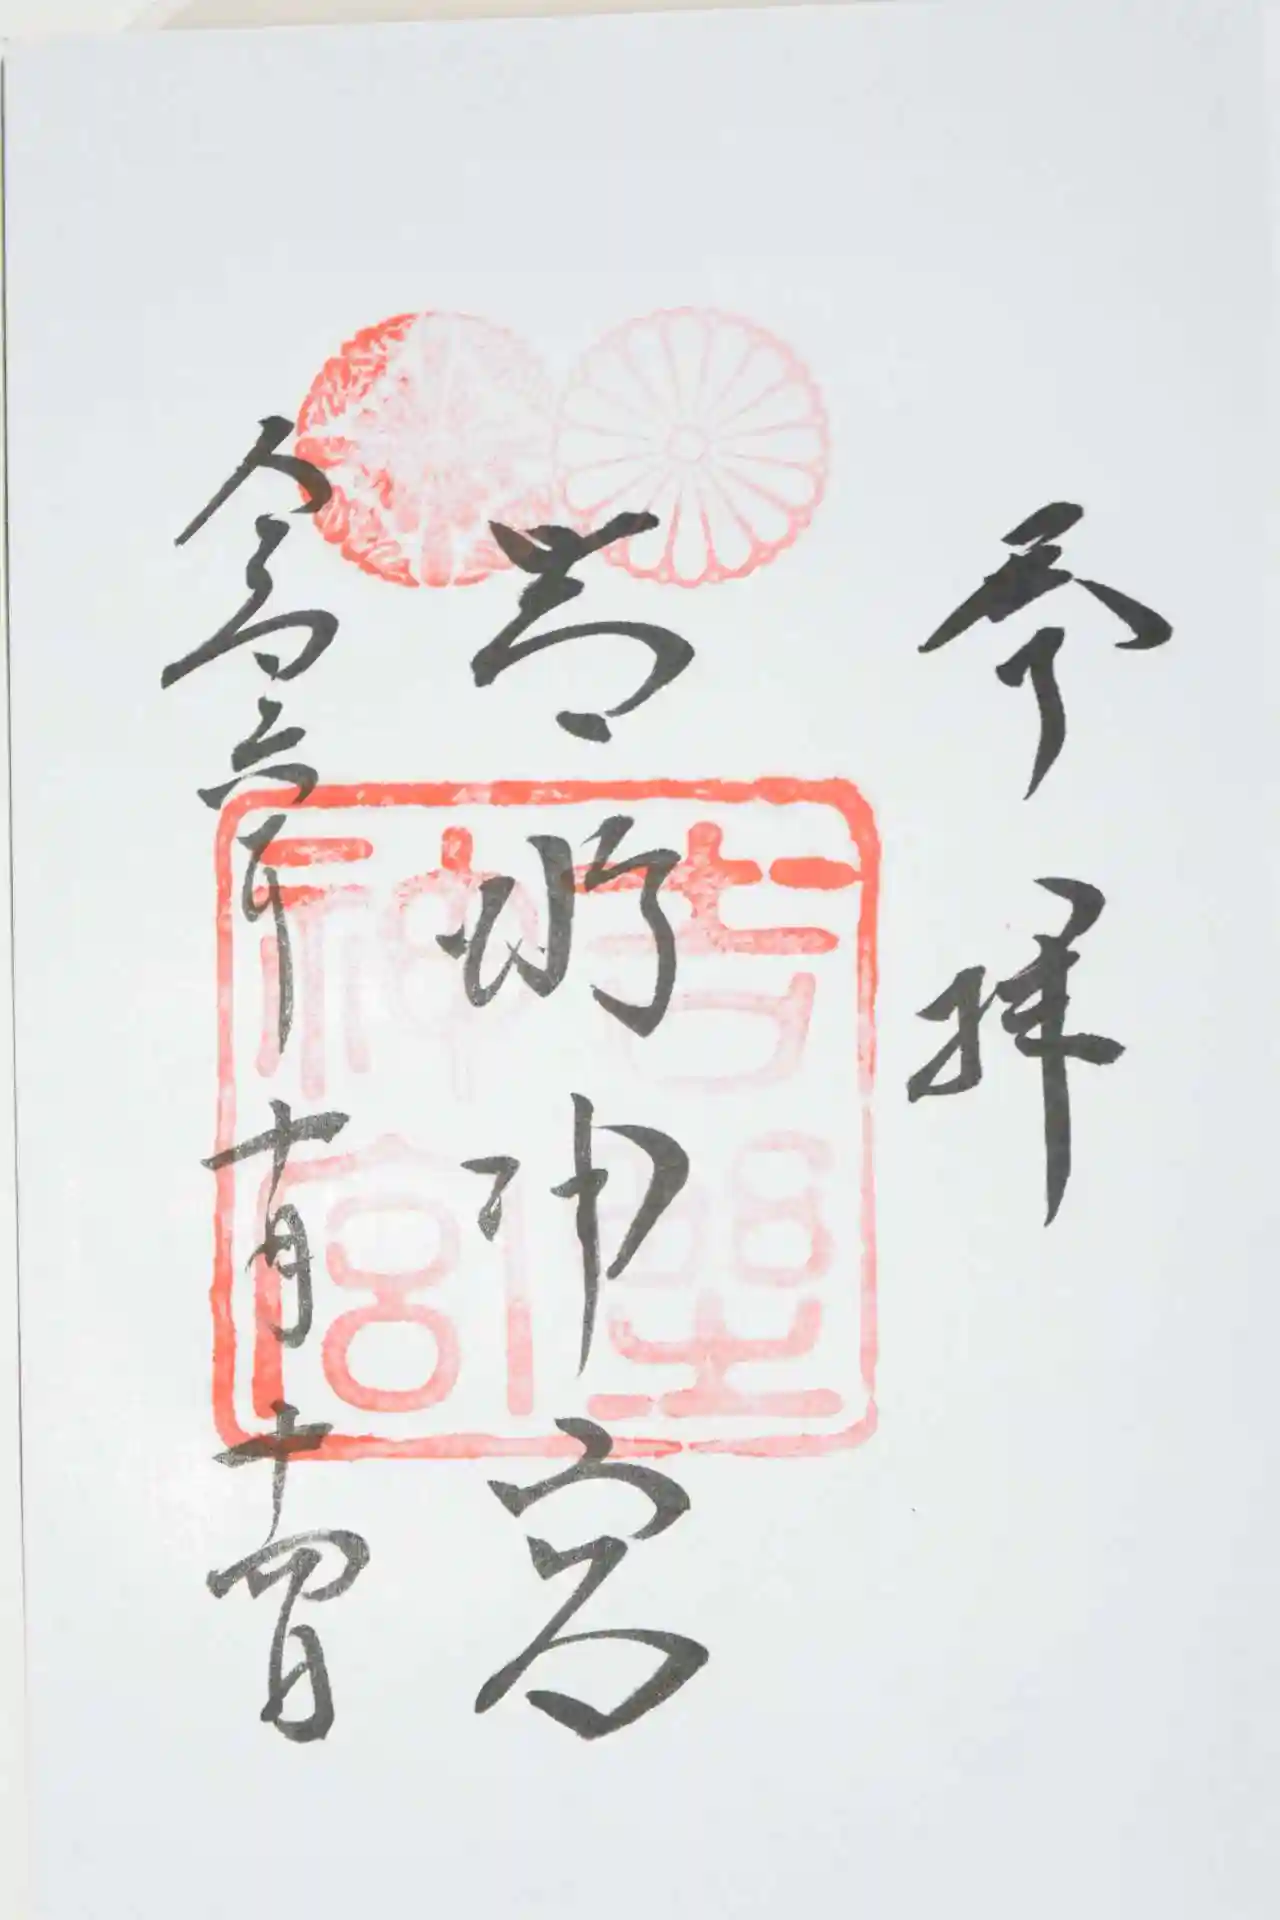 参拝
吉野神宮
令和六年十一月十四日
吉野
神宮